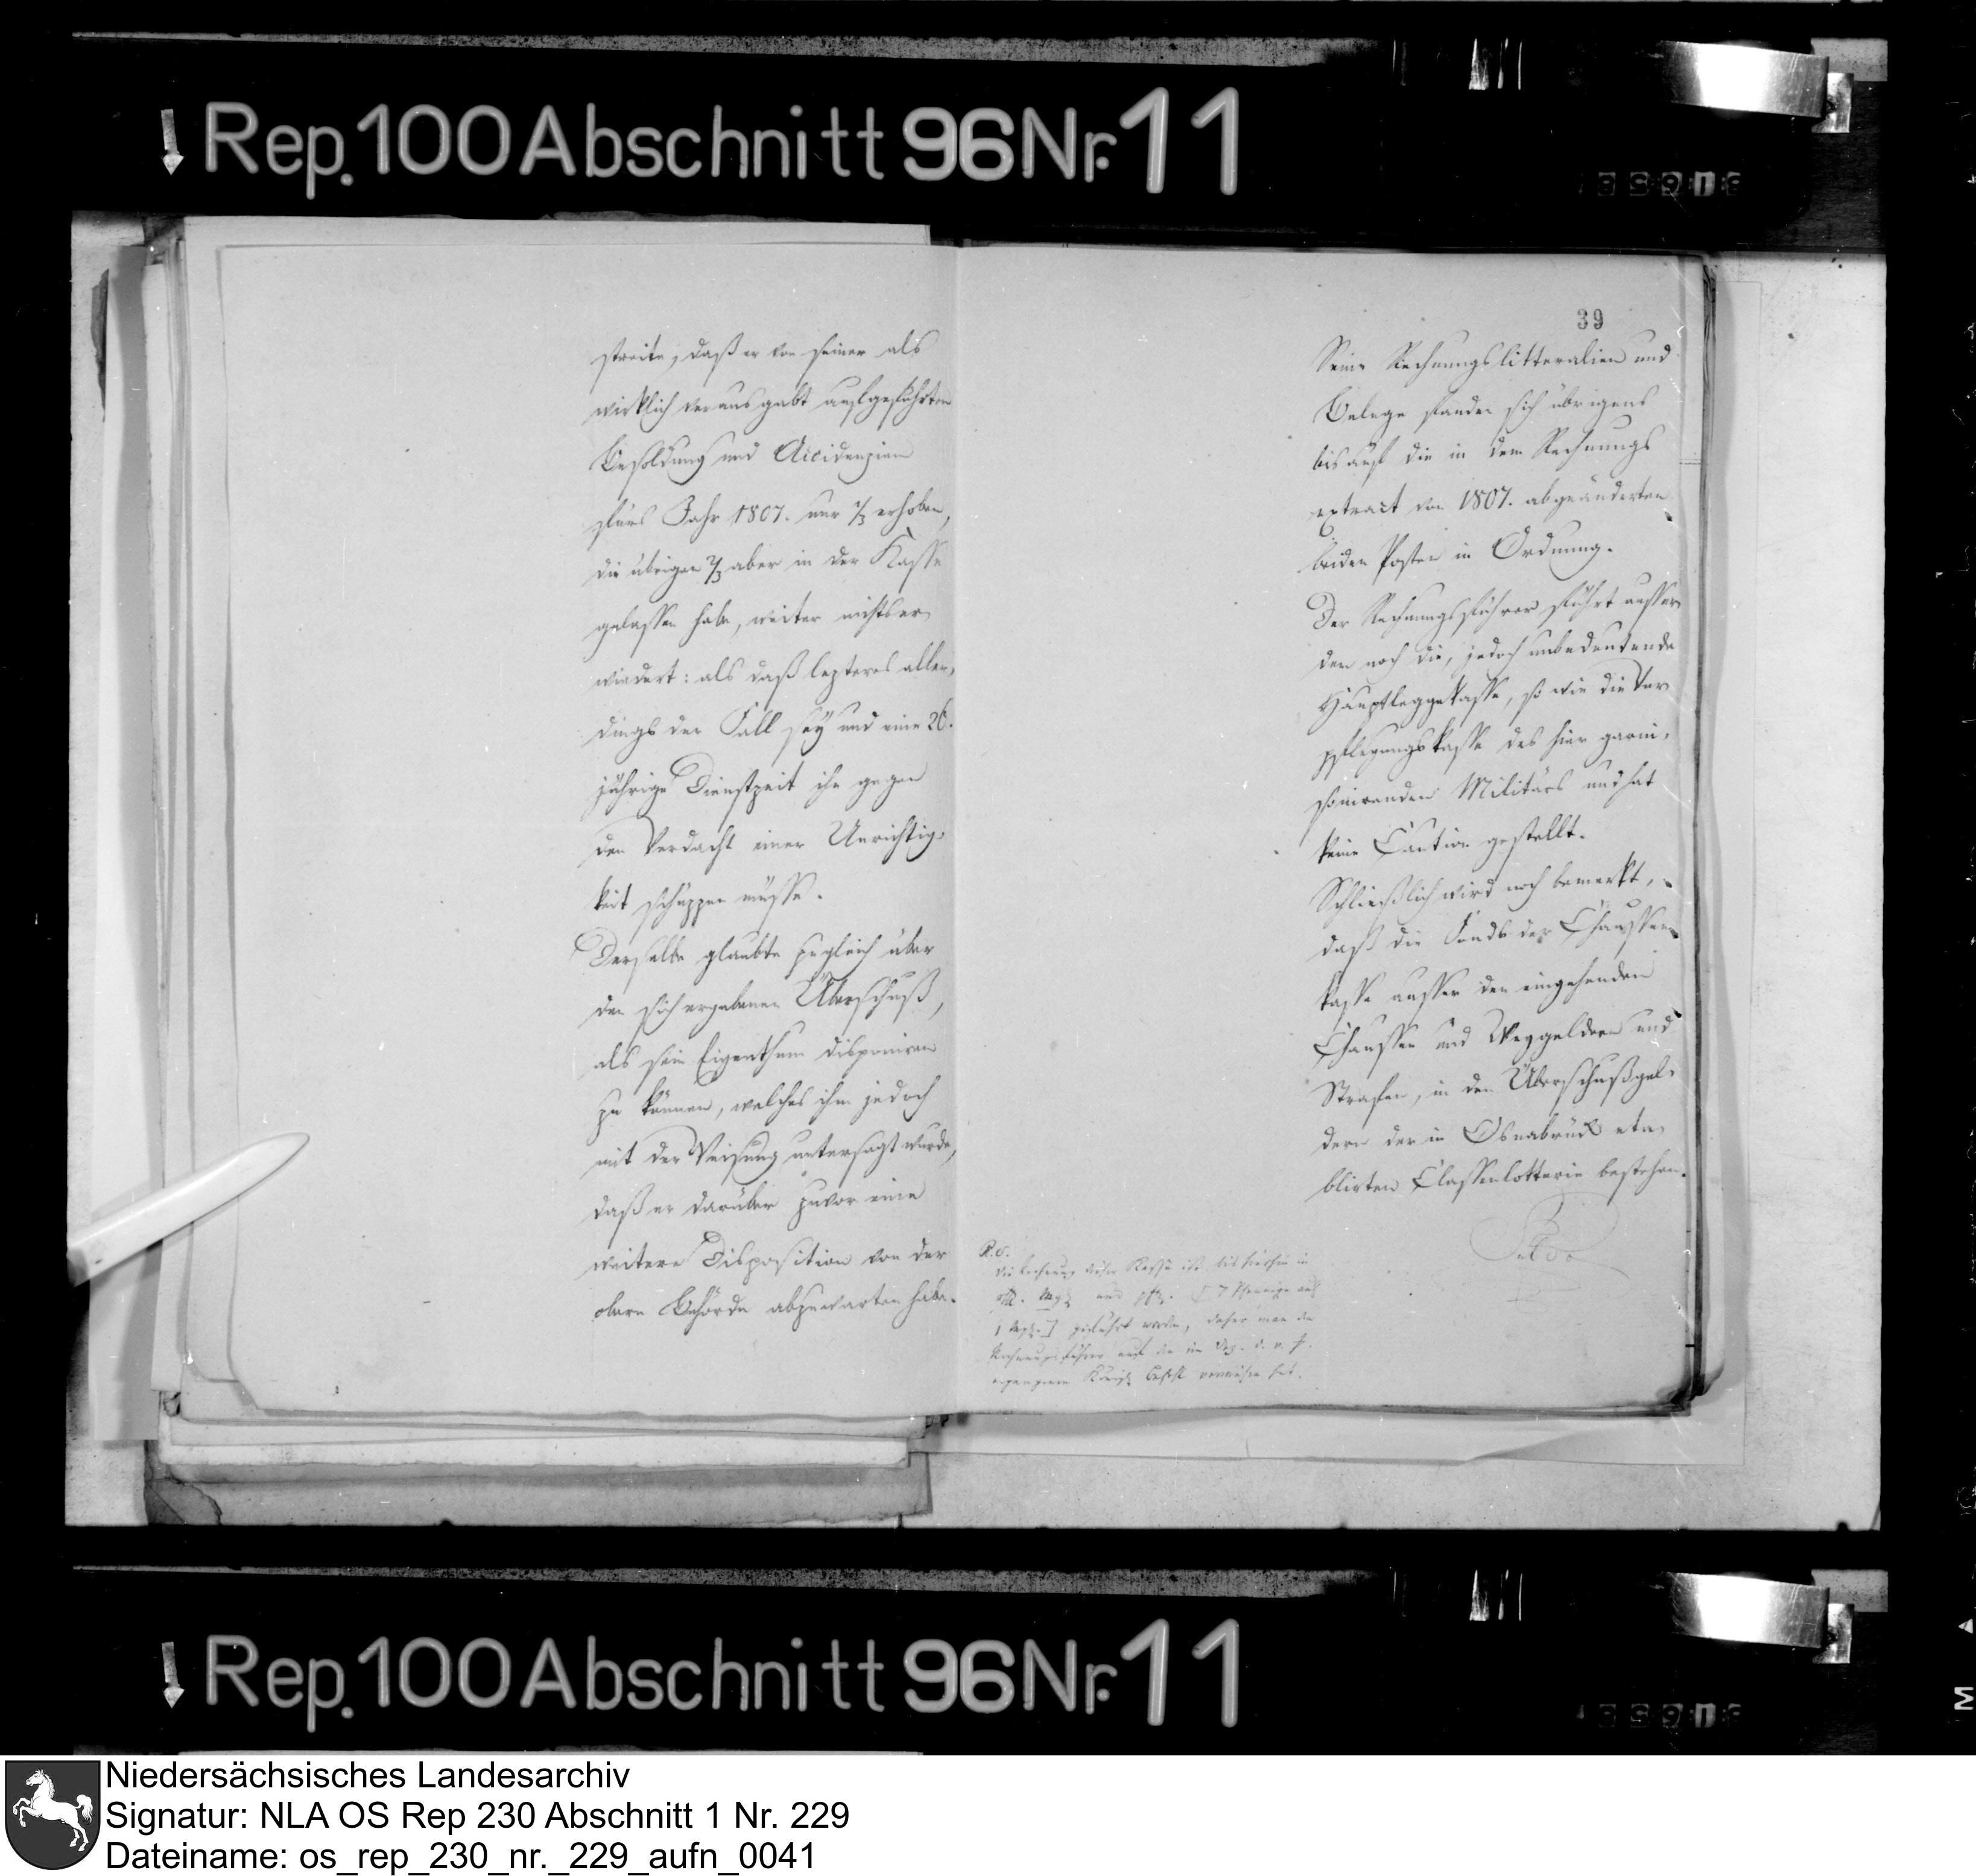 Rep. 100 Abschnitt 96 Nr. 11
streite, daß er von seiner als
wirklich verausgabt aufgeführten
Besoldung und Accidenzien
fürs Jahr 1807. nur 1/3 erhoben,
die übrigen 2/3 aber in der Kasse
gelassen habe, weiter nichts er
wiedert: als daß lezteres aller,
dings der Fall sey und eine 26.
jährige Dienstzeit ihn gegen
den Verdacht einer Unrichtig,
keit schüzzen müsse.
Derselbe glaubte zugleich über
den sich ergebenen Überschuß,
als sein Eigenthum disponiren
zu können, welches ihm jedoch
mit der Weisung untersagt wurde,
daß er darüber zuvor eine
weitere Disposition von der
obern Behörde abzuwarten habe.
39
Seine Rechnungslitteralien und
Belege fanden sich übrigens
bis auf die in dem Rechnungs
extract von 1807. abgeänderten
beiden Posten in Ordnung.
Der Rechnungsführer führt ausser
dem noch die, jedoch unbedeutende
Hauptleggekasse, so wie die Ver
pflegungskasse des hier garni,
sonirenden Militärs und hat
keine Caution gestellt.
Schließlich wird noch bemerkt,
daß die Fonds der Chaussee
kasse ausser den eingehenden
Chaussee und Weggeldern und
Strafen, in den Überschußgel,
dern der in Osnabrück eta,
blirten Classenlotterie bestehen.
die Rechnung dieser Kasse ist bis hierhin in
und 7 Pfennige auf
1 geführt worden, daher man den
Rechnungsführer auf die im
ergangene Königl. Befehl verwiesen hat.
Rep. 100 Abschnitt 96 Nr. 11
Niedersächsisches Landesarchiv
Signatur: NLA OS Rep 230 Abschnitt 1 Nr. 229
Dateiname: os_rep_230_nr._229_aufn_0041